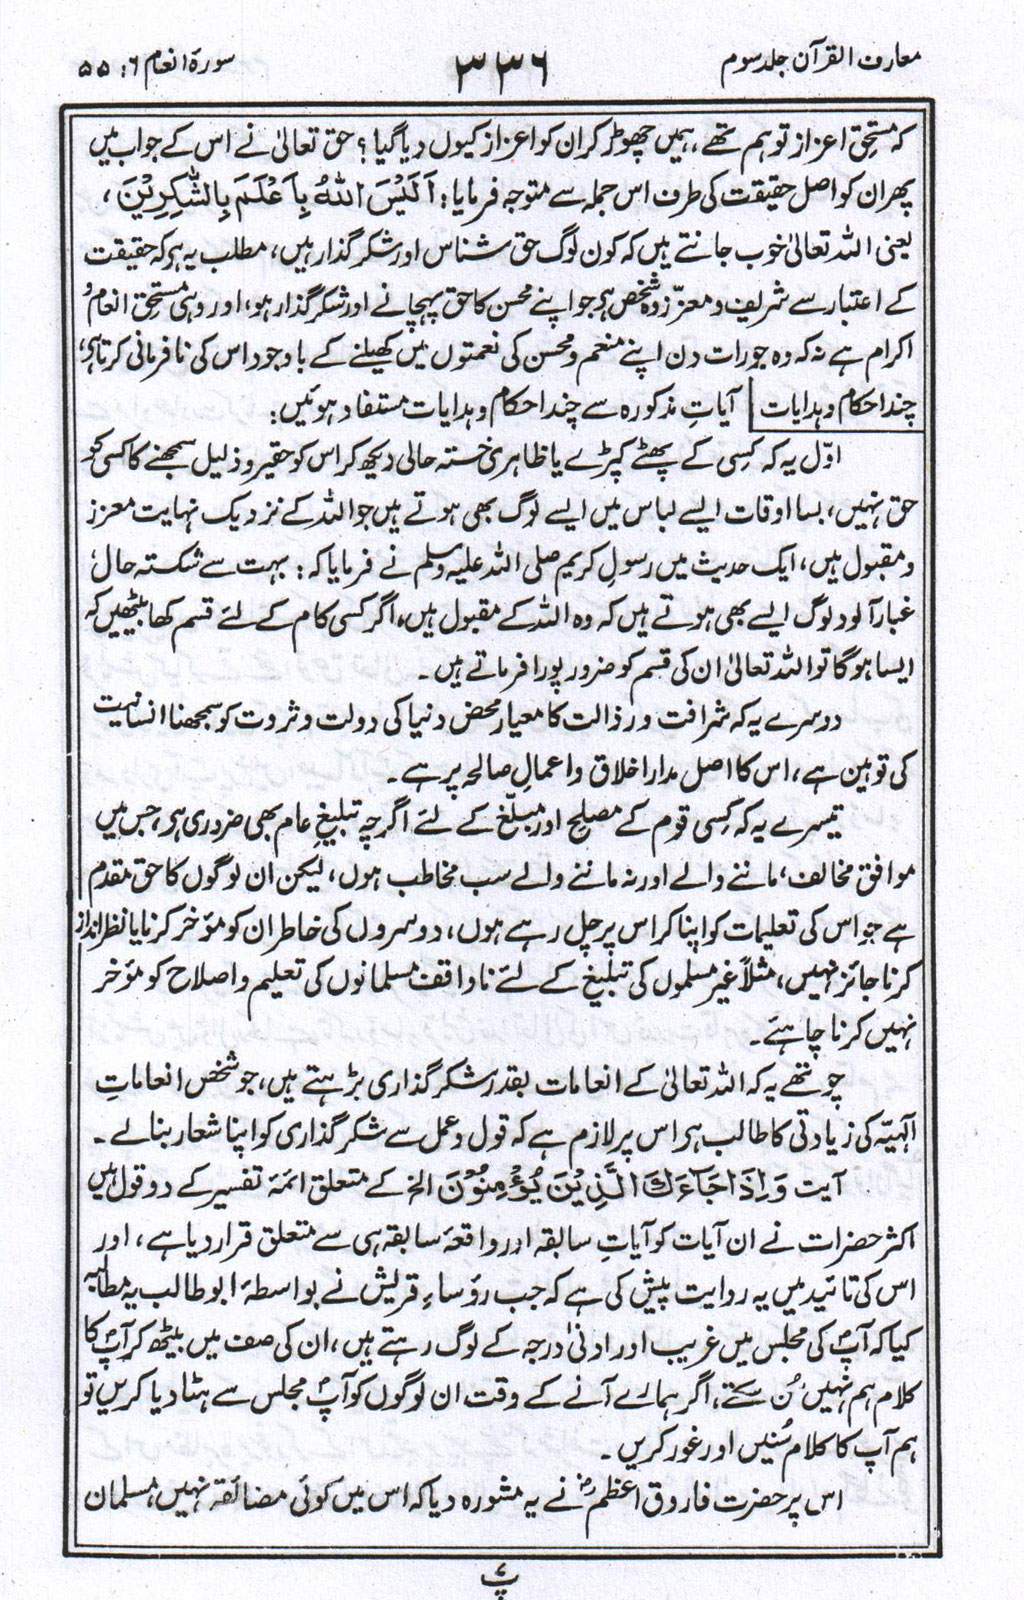 معارف القرآن جلد سوم
۳۳۶
سورۃ انعام ۶: ۵۵
کہ مستحق اعزاز تو ہم تھے، ہمیں چھوڑ کر ان کو اعزاز کیوں دیا گیا؟ حق تعالیٰ نے اس کے جواب میں
پھر ان کو اصل حقیقت کی طرف اس جملہ سے متوجہ فرمایا: اَلَیْسَ اللّٰہُ بِاَعْلَمَ بِالشّٰکِرِیْنَ،
یعنی اللہ تعالیٰ خوب جانتے ہیں کہ کون لوگ حق شناس اور شکر گذار ہیں، مطلب یہ ہی کہ حقیقت
کے اعتبار سے شریف و معزز وہ شخص ہی جو اپنے محسن کا حق پہچانے اور شکر گذار ہو، اور وہی مستحق انعام و
اکرام ہے نہ کہ وہ جو رات دن اپنے منعم و محسن کی نعمتوں میں کھیلنے کے باوجود اس کی نافرمانی کرتا ہی،
چند احکام و ہدایات آیاتِ مذکورہ سے چند احکام و ہدایات مستفاد ہوئیں:
اوّل یہ کہ کسِی کے پھٹے کپڑے یا ظاہری خستہ حالی دیکھ کر اس کو حقیر و ذلیل سمجھنے کا کسی کو
حق نہیں، بسا اوقات ایسے لباس میں ایسے لوگ بھی ہوتے ہیں جو اللہ کے نزدیک نہایت معزز
و مقبول ہیں، ایک حدیث میں رسولِ کریم صلی اللہ علیہ وسلم نے فرمایا کہ: بہت سے شکستہ حال،
غبار آلود لوگ ایسے بھی ہوتے ہیں کہ وہ اللہ کے مقبول ہیں، اگر کسی کام کے لئے قسم کھا بیٹھیں کہ
ایسا ہو گا تو اللہ تعالیٰ ان کی قسم کو ضرور پورا فرماتے ہیں۔
دوسرے یہ کہ شرافت و رذالت کا معیار محض دنیا کی دولت و ثروت کو سمجھنا انسانیت
کی توہین ہے، اس کا اصل مدار اخلاق و اعمالِ صالحہ پر ہے۔
تیسرے یہ کہ کسِی قوم کے مصلح اور مبلّغ کے لئے اگرچہ تبلیغِ عام بھی ضروری ہی، جس میں
موافق مخالف، ماننے والے اور نہ ماننے والے سب مخاطب ہوں، لیکن ان لوگوں کا حق مقدم
ہے جو اس کی تعلیمات کو اپنا کر اس پر چل رہے ہوں، دوسروں کی خاطر ان کو مؤخر کرنا یا نظر انداز
کرنا جائز نہیں، مثلاً غیر مسلموں کی تبلیغ کے لئے ناواقف مسلمانوں کی تعلیم و اصلاح کو مؤخر
نہیں کرنا چاہئے۔
چوتھے یہ کہ اللہ تعالیٰ کے انعامات بقدر شکر گذاری بڑہتے ہیں، جو شخص انعاماتِ
الٰہیّہ کی زیادتی کا طالب ہی اس پر لازم ہے کہ قول و عمل سے شکر گذاری کو اپنا شعار بنا لے۔
آیت وَاِذَا جَآءَکَ الَّذِیْنَ یُؤْمِنُوْنَ الخ کے متعلق ائمۂ تفسیر کے دو قول ہیں
اکثر حضرات نے ان آیات کو آیاتِ سابقہ اور واقعۂ سابقہ ہی سے متعلق قرار دیا ہے، اور
اس کی تائید میں یہ روایت پیش کی ہے کہ جب رؤساءِ قریش نے بواسطۂ ابو طالب یہ مطالبہ
کیا کہ آپؐ کی مجلس میں غریب اور ادنیٰ درجہ کے لوگ رہتے ہیں، ان کی صف میں بیٹھ کر آپؐ کا
کلام ہم نہیں سُن سکتے، اگر ہمارے آنے کے وقت ان لوگوں کو آپؐ مجلس سے ہٹا دیا کریں تو
ہم آپ کا کلام سُنیں اور غور کریں۔
اس پر حضرت فاروق اعظمؓ نے یہ مشورہ دیا کہ اس میں کوئی مضائقہ نہیں، مسلمان
پ